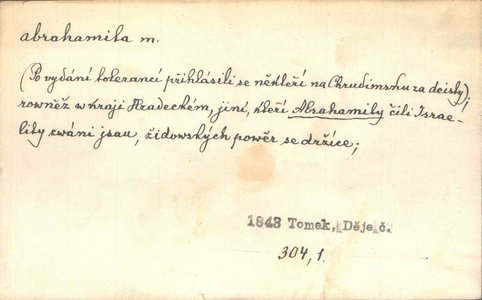 abrahamita m.
(Po vydání tolerancí přihlásili se někteří na Chrudimsku za deisty);
rowněž w kraji Hradeckém, jiní, kteří Abrahamity čili Israe-
lity zwáni jsau, židowských powěr se držíce;
1843 Tomek, Děje č.
304,1.